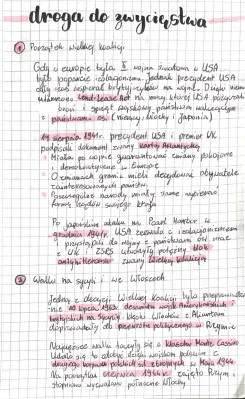 droga do zwycięstwa
1 Początek wielkiej koalicji
Gdy w europie była II wojna światowa w USA
było poparcie izolacjonizmu. Jednak prezydent USA
chciał wspomóc brytyjczyków na wojnie. Dzięki niemu
uchwalono Lend-Lease Act na mocy której USA pożyczało
broń i sprzęt wszystkim państwom walczącym z
państwami osi (niemcy, włochy i Japonia)
14 sierpnia 1941r. prezydent USA i premier UK
podpisali dokument zwany kartą Atlantycką
Miała po wojnie gwarantować zmiany pokojowe
i demokratyczne w Europie
O zmianach granic mieli decydować obywatele
zainteresowanych państw.
Poszczególne narody miały same wybierać
formę rządów swojego kraju
Po japońskim ataku na Pearl Harbor w
grudniu 1941r. USA zerwała z izolacjonizmem
i przystąpiła do wojny z państwami osi oraz
z UK i ZSRS utworzyły potężny blok
antyhitlerowski zwany Wielką koalicją
2 Walki na sycylii i we Włoszech
Jedną z decyzji Wielkiej koalicji było przeprowadzenie
10 lipca 1943r. desantu wojsk Amerykańskich i
brytyjskich na Sycylii. Klęski Włochów z Aliantami
doprowadziły do przewrotu politycznego w Rzymie
Najcięższe walki toczyły się o klasztor Monte Cassino
Udało się to zdobyć dzięki wojskom polskim z
drugiego korpusu polskich sił zbrojnych w Maju 1944
Na początku czerwca 1944r. zajęto Rzym i
stopniowo wyzwalano północne Włochy